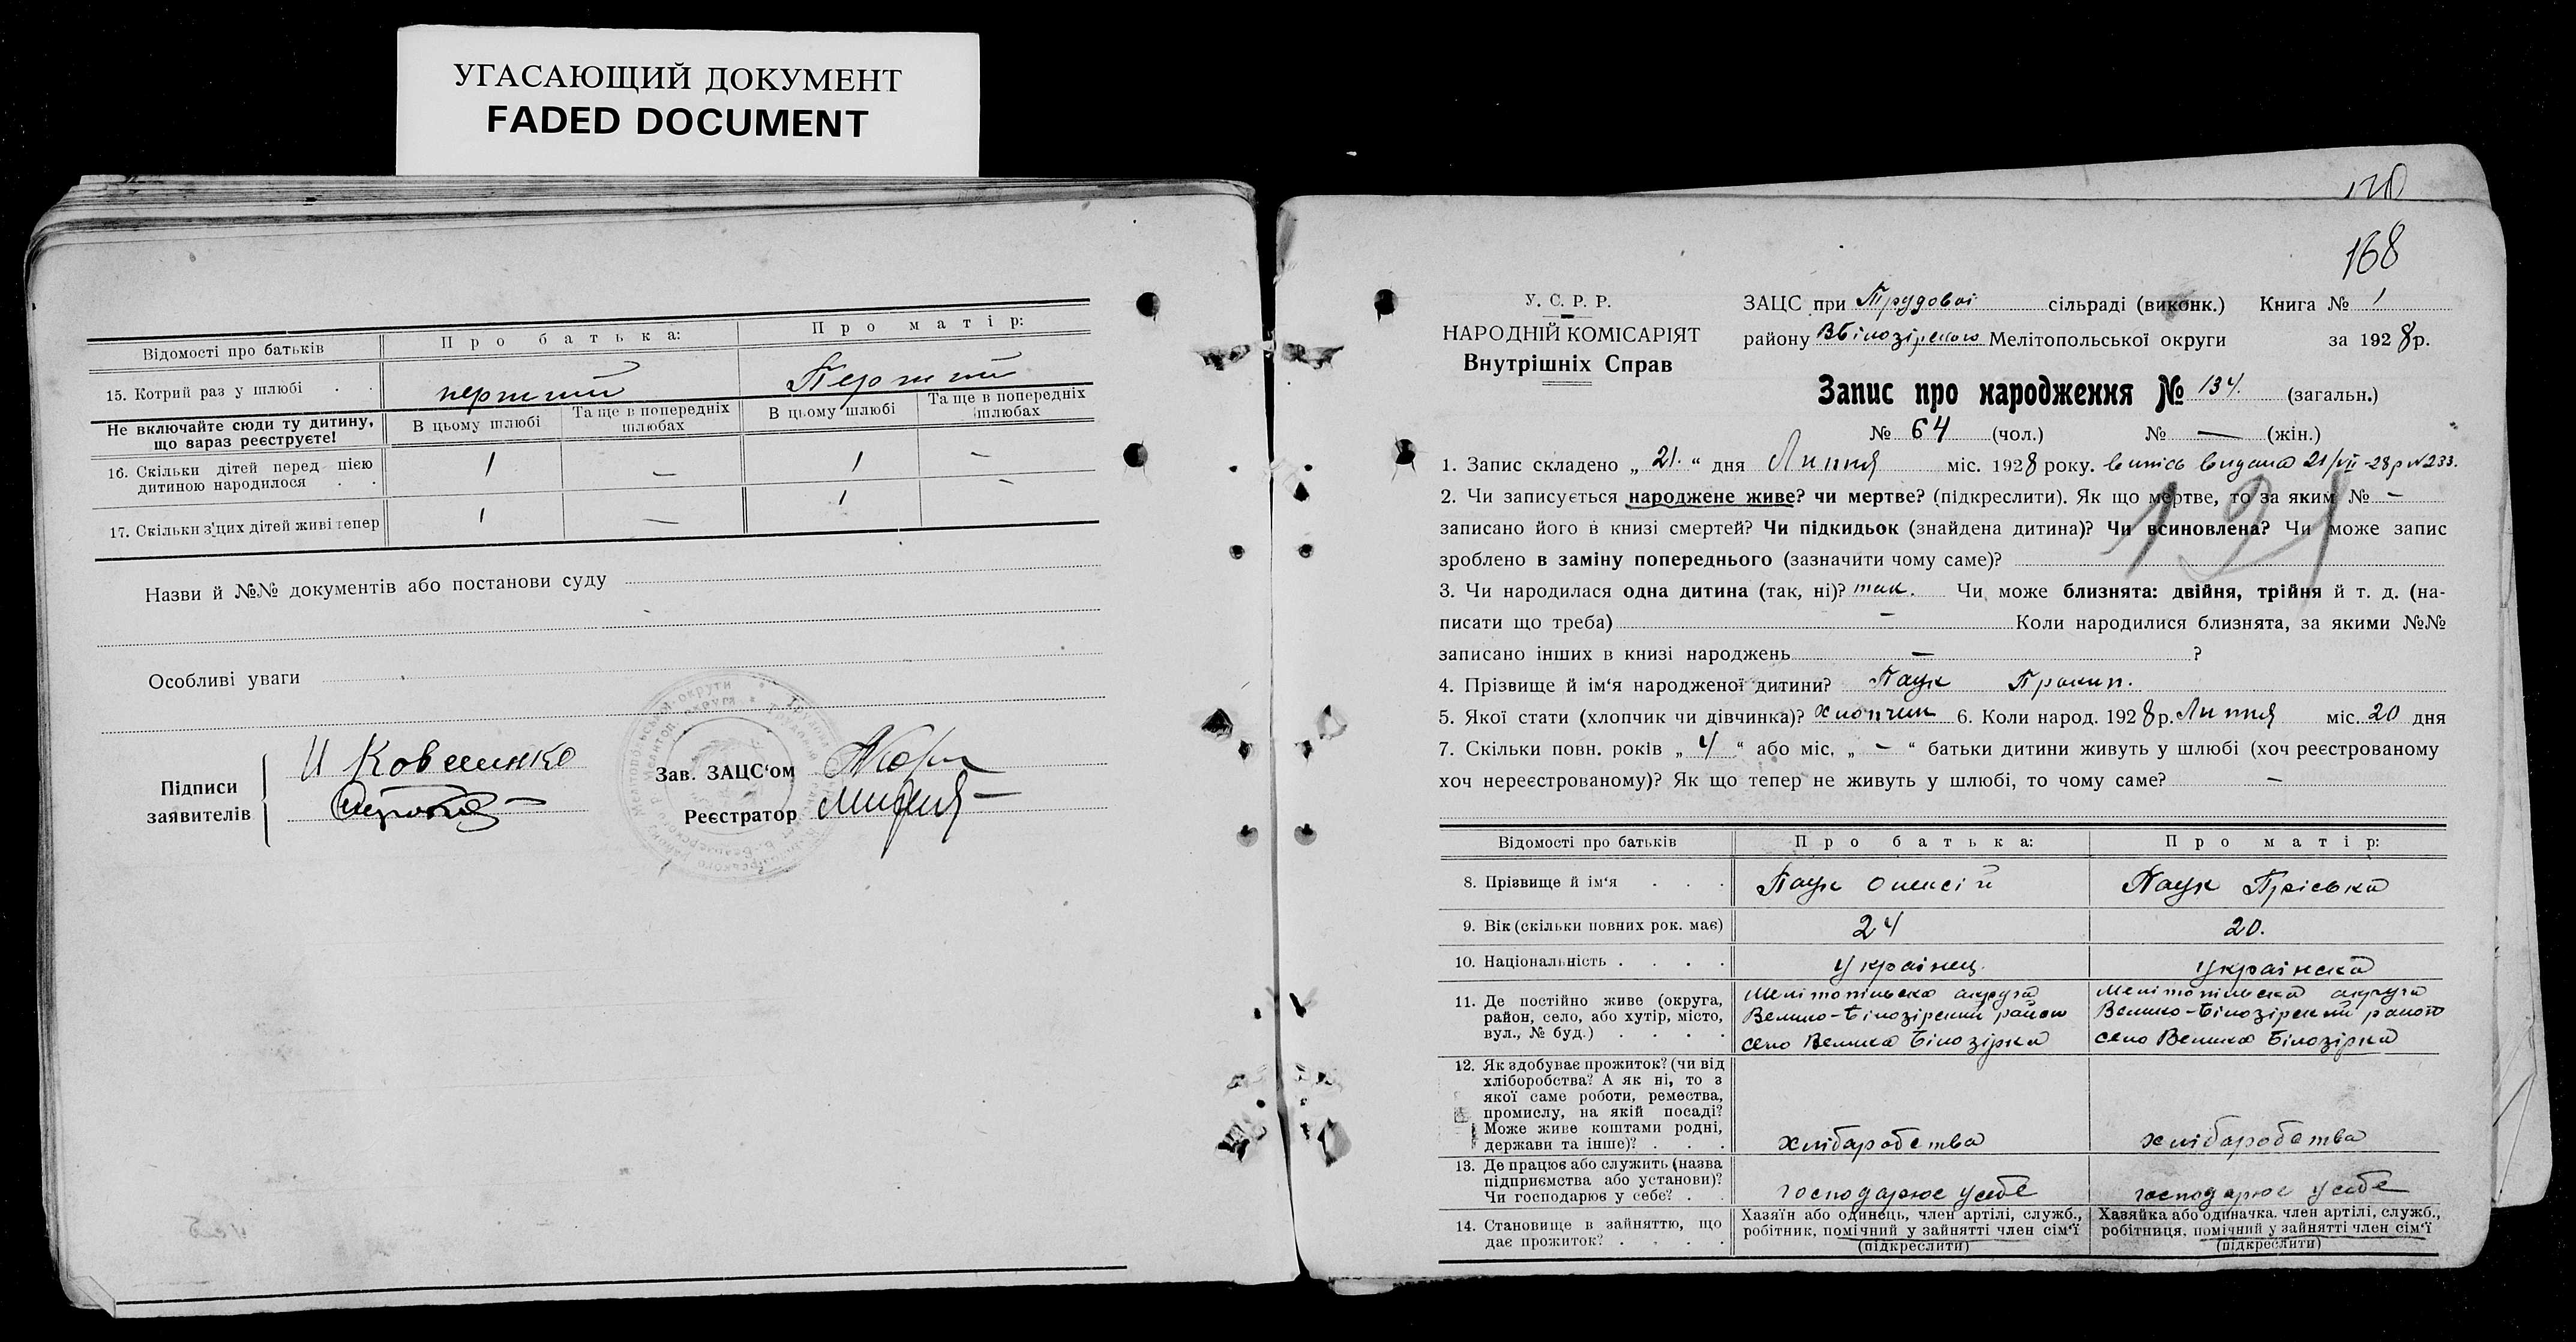 УГАСАЮЩИЙ ДОКУМЕНТ
FADED DOCUMENT
Відомості про батьків
Про батька:
Про матір:
15. Котрий раз у шлюбі . .
перший
Перший
Не включайте сюди ту дитину,
що вараз реєструєте!
В цьому шлюбі
Та ще в попередніх
шлюбах
В цьому шлюбі
Та ще в попередніх
шлюбах
16. Скільки дітей перед цією
дитиною народилося . .
1
—
1
—
17. Скільки з цих дітей живі тепер
1
—
1
—
Назви й №№ документів або постанови суду
Особливі уваги
Підписи
заявителів
И Ковшинко
Зав. ЗАЦС'ом
Реєстратор
170
168
У. С. Р. Р.
НАРОДНІЙ КОМІСАРІЯТ
Внутрішніх Справ
ЗАЦС при Трудової сільраді (виконк.) Книга № 1
району ВБілозірского Мелітопольської округи за 1928р.
Запис про народження № 134. (загальн.)
№ 64 (чол.) № — (жін.)
1. Запис складено „ 21. “ дня Липня міс. 1928 року. випісь видана 21/VII-28р №233.
2. Чи записується народжене живе? чи мертве? (підкреслити). Як що мертве, то за яким № —
записано його в книзі смертей? Чи підкидьок (знайдена дитина)? Чи всиновлена? Чи може запис
зроблено в заміну попереднього (зазначити чому саме)?
121
3. Чи народилася одна дитина (так, ні)? так. Чи може близнята: двійня, трійня й т. д. (на-
писати що треба) — Коли народилися близнята, за якими №№
записано інших в книзі народжень — ?
4. Прізвище й ім'я народженої дитини? Паук Прокип.
5. Якої стати (хлопчик чи дівчинка)? Хлопчик 6. Коли народ. 1928р. Липня міс. 20 дня
7. Скільки повн. років „ 4 “ або міс. „ — “ батьки дитини живуть у шлюбі (хоч реєстрованому
хоч нереєстрованому)? Як що тепер не живуть у шлюбі, то чому саме? —
Відомості про батьків
Про батька:
Про матір:
8. Прізвище й ім'я . . .
Паук Олексій
Паук Пріська
9. Вік (скільки повних рок. має)
24
20.
10. Національність . . . .
українец.
українска
11. Де постійно живе (округа,
район, село, або хутір, місто,
вул., № буд.) . . . .
Мелітопільска округа
Велико-Білозірский район
село Велика Білозірка
Мелітопільска округа
Велико-Білозірский район
село Велика Білозірка
12. Як здобуває прожиток? (чи від
хліборобства? А як ні, то з
якої саме роботи, ремества,
промислу, на якій посаді?
Може живе коштами родні,
держави та інше)? . . .
хлібаробства
хлібаробства
13. Де працює або служить (назва
підприємства або установи)?
Чи господарює у себе? . .
господарює у себе
господарює у себе
14. Становище в зайняттю, що
дає прожиток? . . . .
Хазяїн або одинець, член артілі, служб.,
робітник, помічний у зайнятті член сім'ї
(підкреслити)
Хазяйка або одиначка, член артілі, служб.,
робітниця, помічний у зайнятті член сім'ї
(підкреслити)